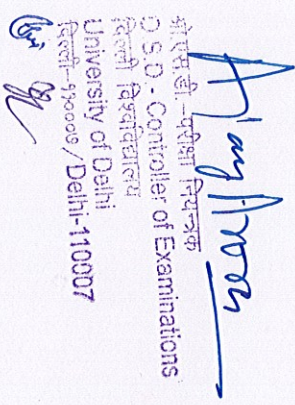 ओ.एस.डी.-परीक्षा नियन्त्रक
O.S.D - Controller of Examinations
दिल्ली विश्वविद्यालय
University of Delhi
दिल्ली-११०००७/Delhi-110007